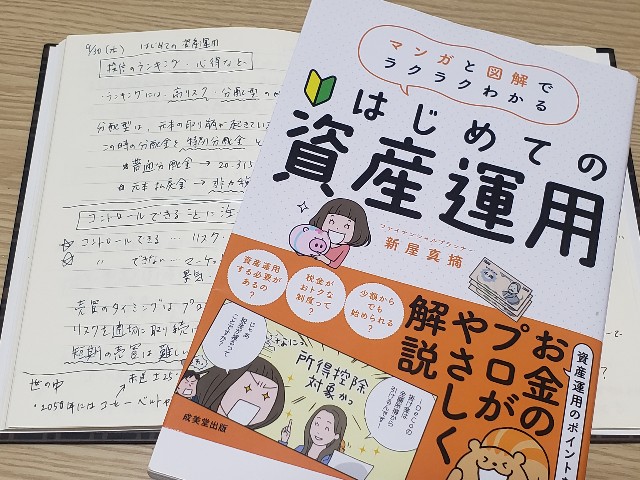 9/30(水) はじめての資産運用
投信のランキング・心得など
・ランキングには、高リスク・分配型の
分配型は、元本の取り崩しが起きてい
この時の分配金を特別分配金と
普通分配金 → 20.315
元本払戻金 → 非か税
コントロールできることに注
コントロールできる … リスク
〃 できない … マーケッ
売買のタイミングはプロ
リスクを適切に取り続
短期の売買は難しい
世の中
・2050年には
マンガと図解で
ラクラクわかる
はじめての
資産運用
ファイナンシャルプランナー
新屋真摘
資産運用
する必要が
あるの?
税金が
おトクな
制度って?
少額から
でも
始められる?
お金の
プロが
やさしく
解説
資産運用のポイントを
じゃあ
税金が減るって
ことですか?
所得控除
対象か
iDeCoの
掛け金は
全額所得から
引けるんです!
成美堂出版